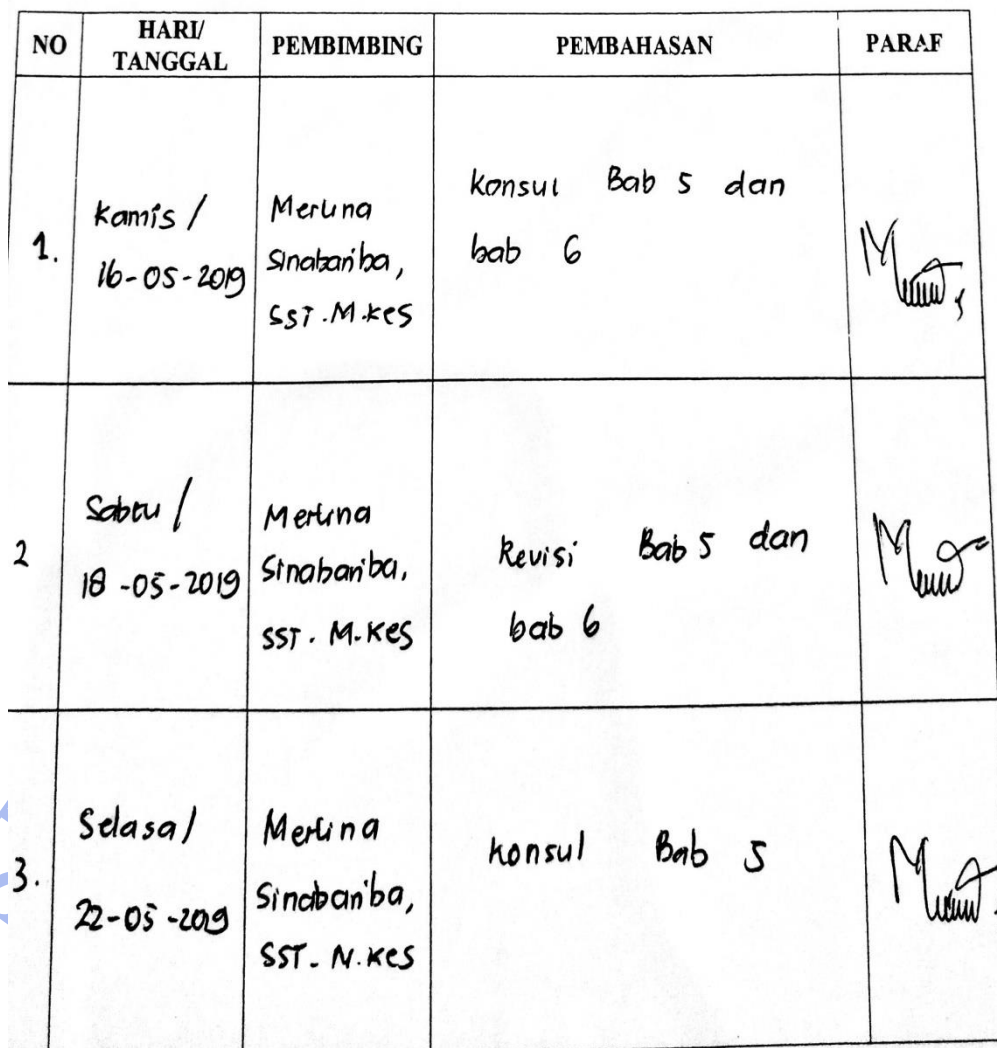 NO HARI/ PEMBIMBING PEMBAHASAN PARAF
TANGGAL
1.
Kamis /
16-05-2019
Merlina
Sinabariba,
SST.M.Kes
Konsul Bab 5 dan
bab 6
2
Sabtu /
18-05-2019
Merlina
Sinabariba,
SST. M.Kes
Revisi Bab 5 dan
bab 6
3.
Selasa/
22-05-2019
Merlina
Sinabariba,
SST. N.Kes
Konsul Bab 5